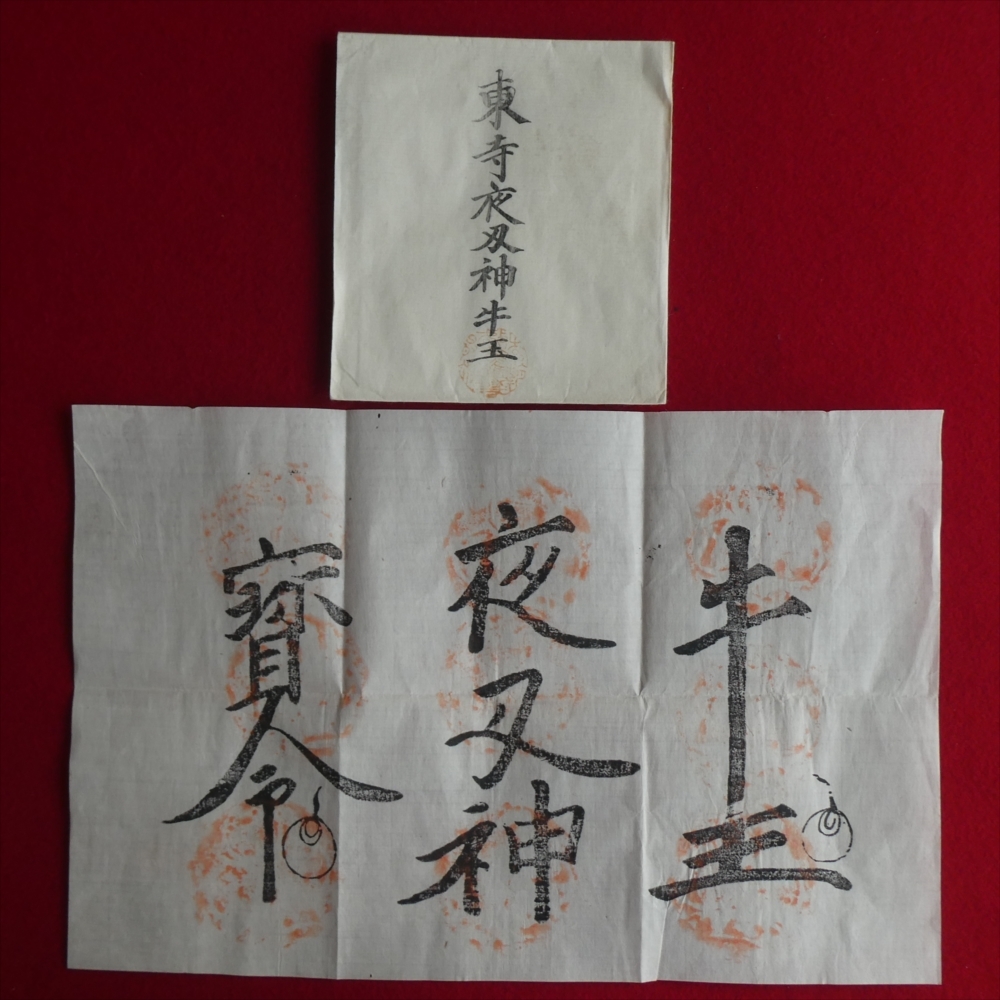 東寺夜叉神牛玉
牛玉
夜叉神
寳印